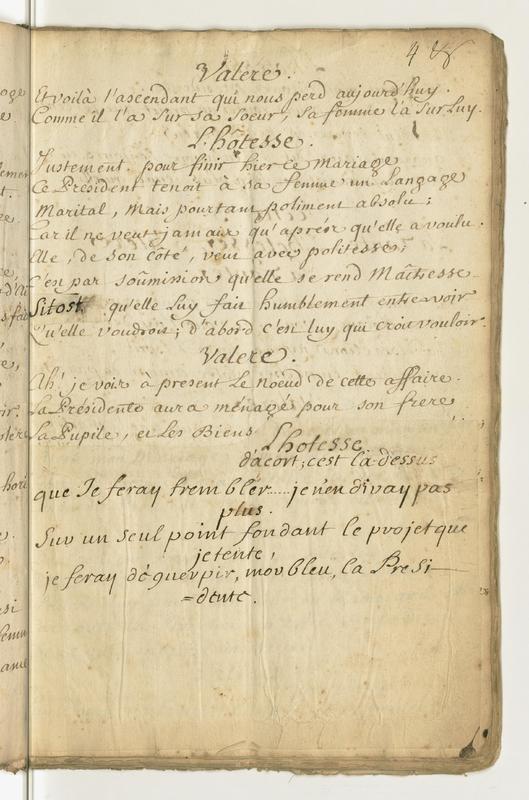 4
Valere.
Et voilà l'ascendant qui nous perd aujourd'huy.
Comme il l'a sur sa Soeur, sa femme l'a Sur Luy.
L'hôtesse.
Justement. pour finir hier ce Mariage
Ce Président tenoit à sa femme un Langage
Marital, Mais pourtant poliment absolu;
Car il ne veut jamais qu'après qu'elle a voulu.
Elle, de son côté, veut avec politesse;
C'est par soûmission qu'elle se rend Maîtresse
Sitôst qu'elle Luy fait humblement entrevoir
Qu'elle voudroit; d'abord c'est luy qui croit vouloir.
Valere.
Ah! je vois à present Le noeud de cette affaire.
La Présidente aura ménagé pour son frere
La Pupile, et Les Biens
L'hotesse
d'acort; c'est là-dessus
que Je feray trembler.....je n'en diray pas
plus.
Sur un seul point fondant le projet que
je tente,
je feray déguerpir, morbleu, la Presi
=dente.